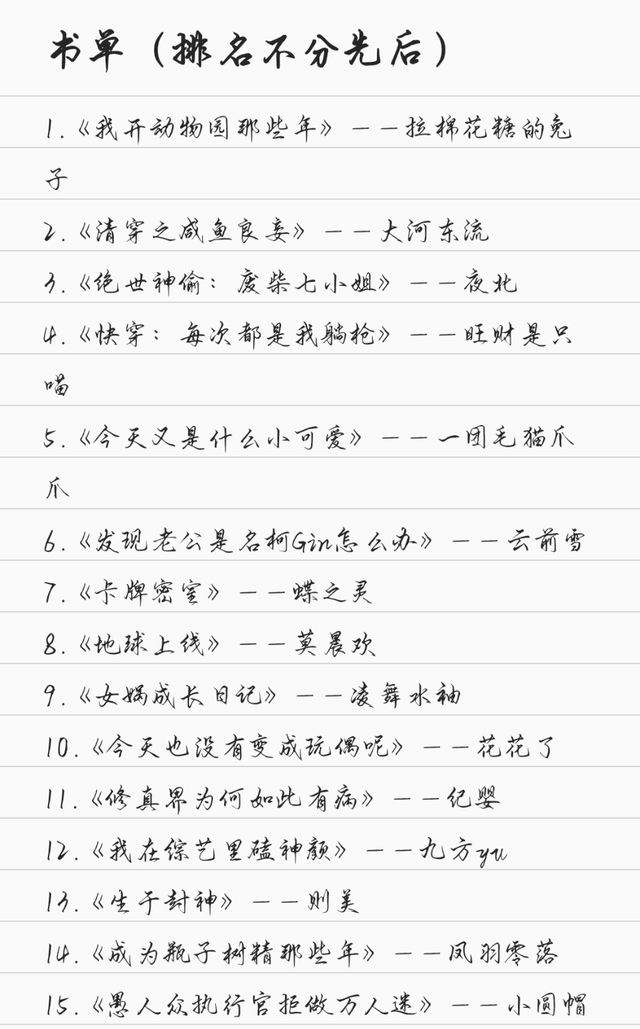 书单（排名不分先后）
1.《我开动物园那些年》——拉棉花糖的兔
子
2.《清穿之咸鱼良妾》——大河东流
3.《绝世神偷：废柴七小姐》——夜北
4.《快穿：每次都是我躺枪》——旺财是只
喵
5.《今天又是什么小可爱》——一团毛猫爪
爪
6.《发现老公是名柯Gin怎么办》——云前雪
7.《卡牌密室》——蝶之灵
8.《地球上线》——莫晨欢
9.《女娲成长日记》——凌舞水袖
10.《今天也没有变成玩偶呢》——花花了
11.《修真界为何如此有病》——纪婴
12.《我在综艺里磕神颜》——九方yu
13.《生于封神》——则美
14.《成为瓶子树精那些年》——凤羽零落
15.《愚人众执行官拒做万人迷》——小圆帽